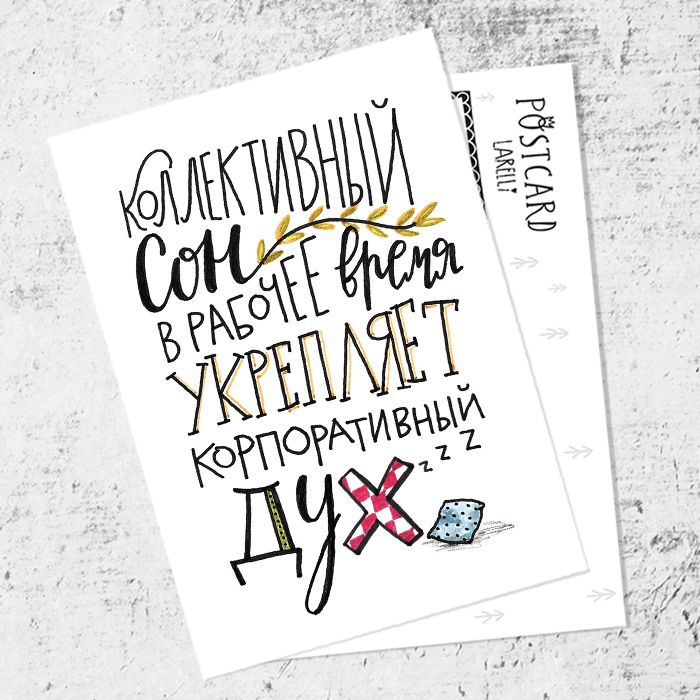 КОЛЛЕКТИВНЫЙ
СОН
В РАБОЧЕЕ время
УКРЕПЛЯЕТ
КОРПОРАТИВНЫЙ
ДУХ z z z
POSTCARD
LARELLI